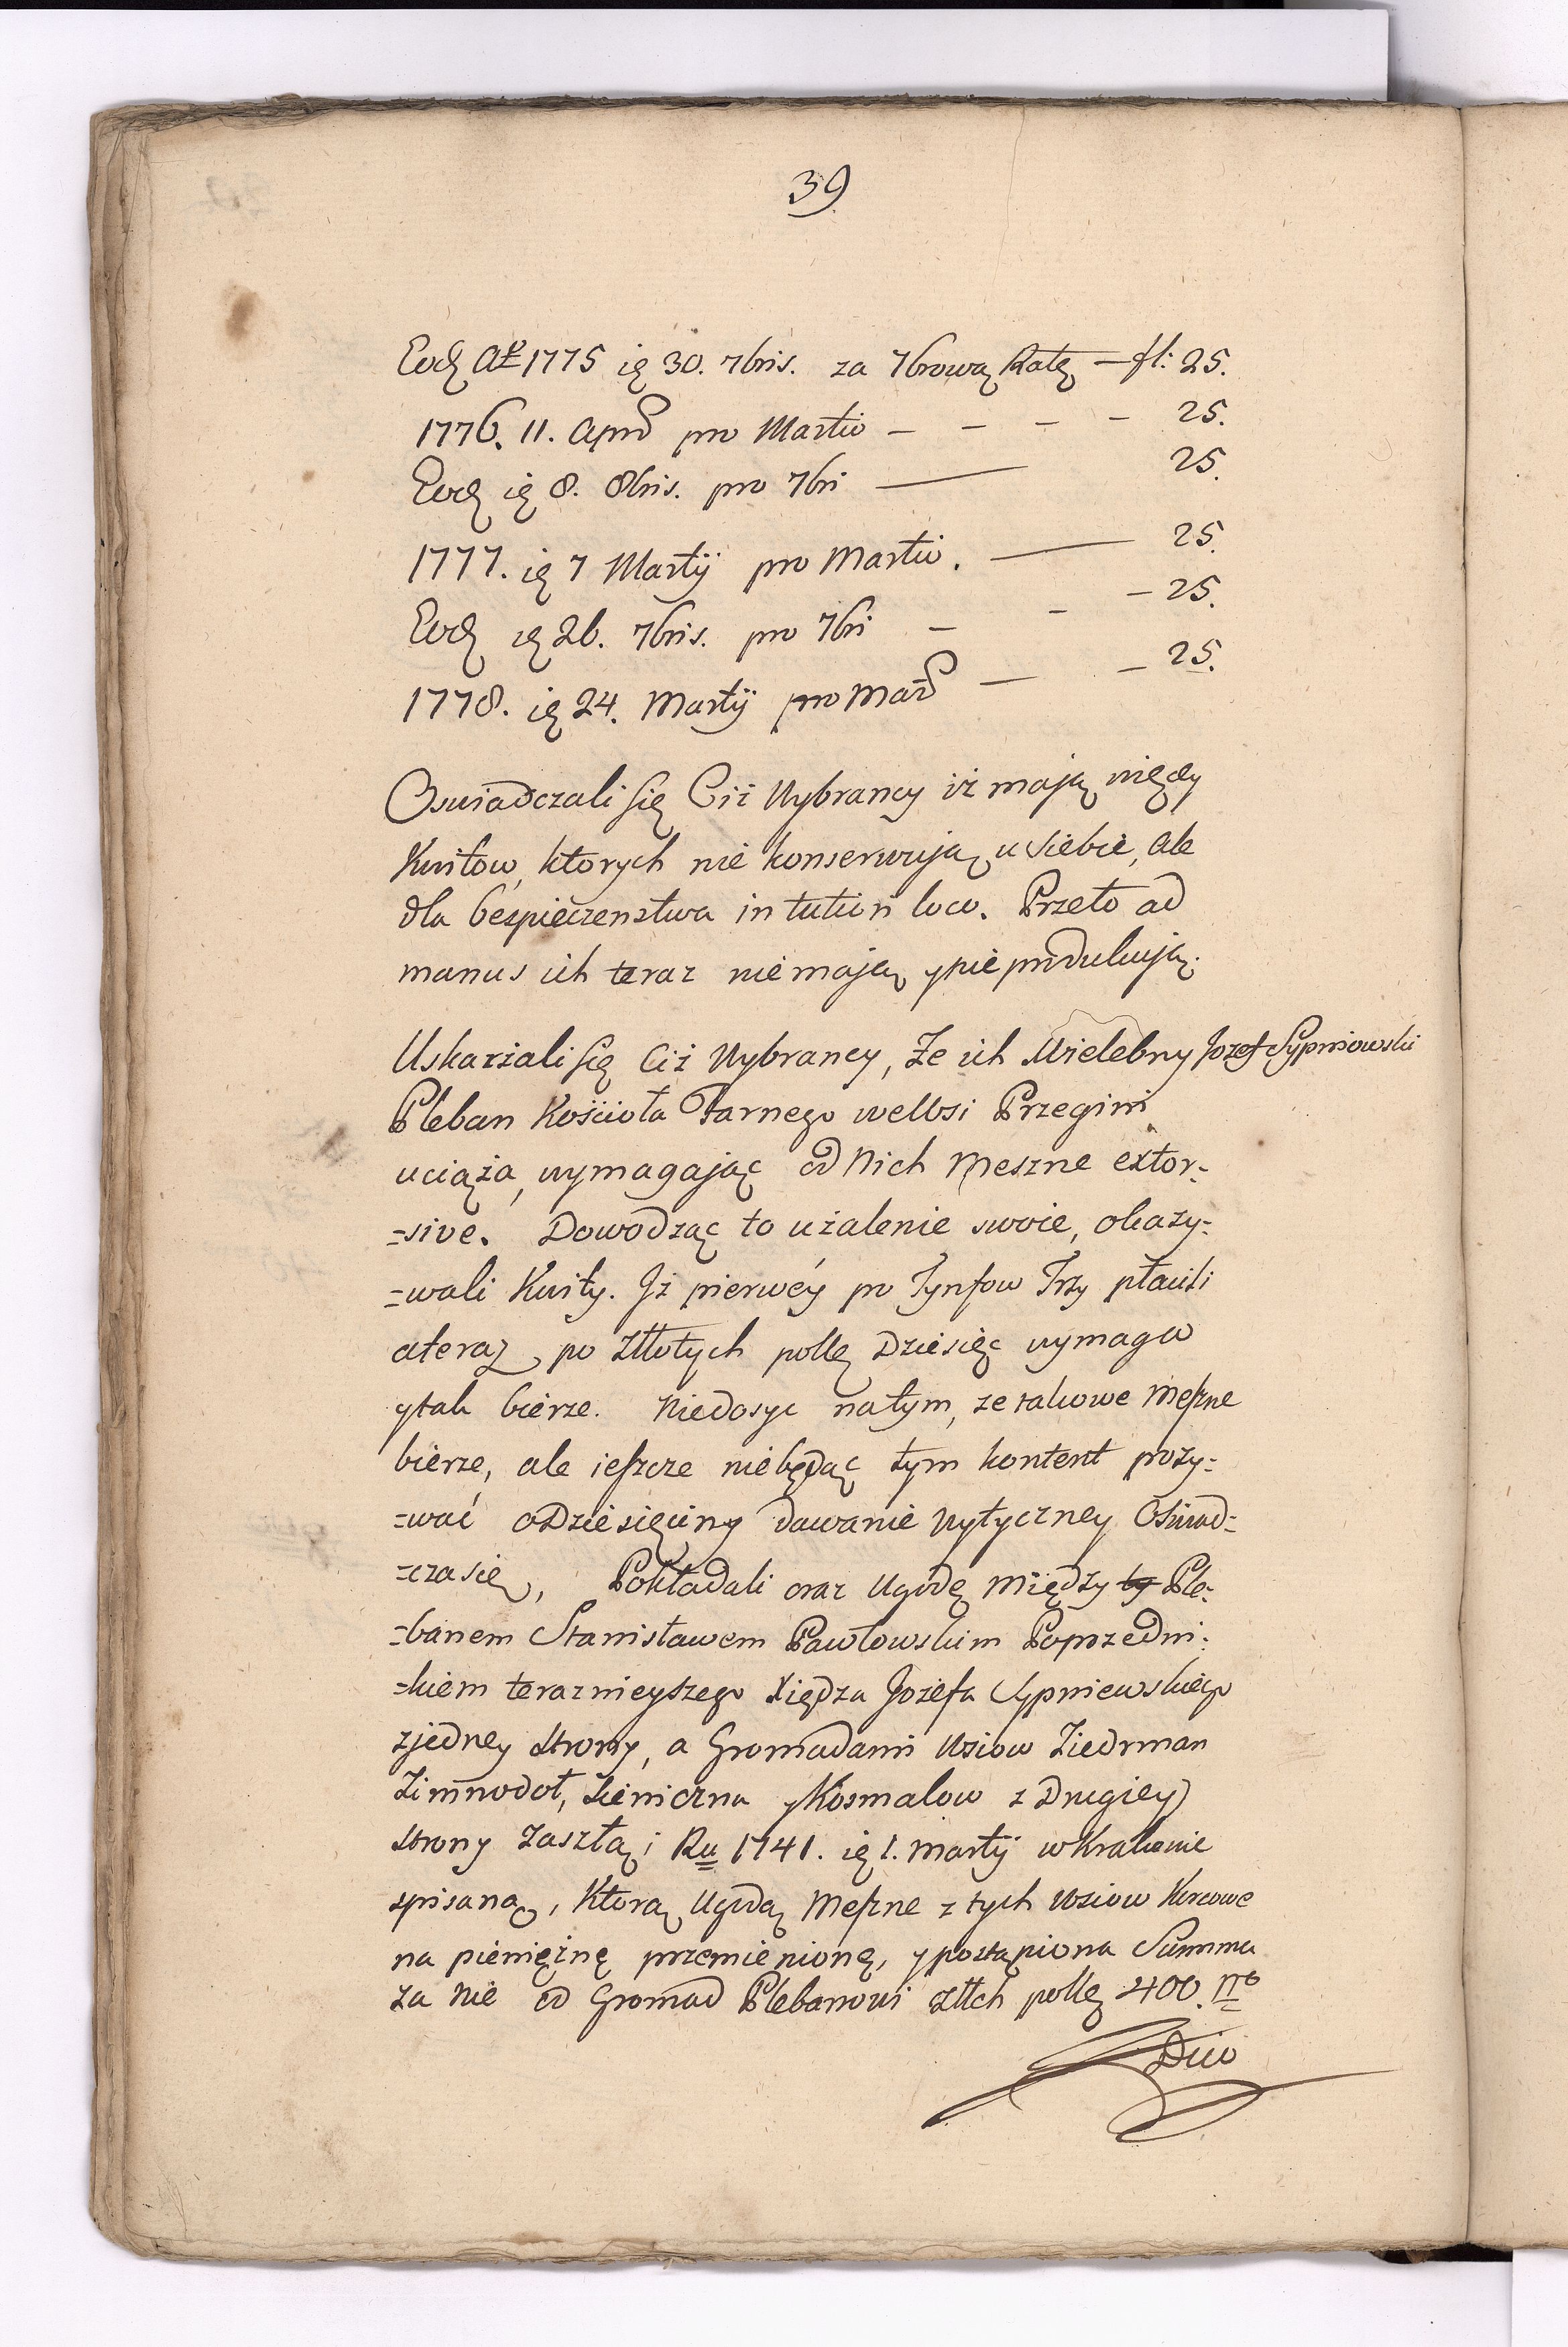 39
Eod Aō 1775 ię 30. 7bris. za 7brową Ratę — fl: 25.
1776. 11. Apr pro Martio – – – – 25.
Eod ię 8. 8bris. pro 7bri —— 25.
1777. ię 7 Martÿ pro Martio. —— 25.
Eod ię 26. 7bris. pro 7bri – – – 25.
1778. ię 24. Martÿ pro Mar — – 25.
Oswiadczali się Ciż Wybrancy iż mają więcey
Kwitow, ktorych nie konserwują u siebie, ale
dla bespieczenstwa in tutiori loco. Przeto ad
manus ich teraz nie mają y nie produkują.
Uskarżali się Ciż Wybrancy, Ze ich Wielebny Jozef Sypniowski
Pleban Kościoła Farnego we Wsi Przegini
uciąża, wymagając od Nich Meszne extor-
=sive. Dowodząc to użalenie swoie, okazy-
=wali Kwity. Jż pierwéy po Tynfow Trzy płacili
ateraz po Złłotych polls Dziesięc wymaga
ytak bierze. Niedosyc natym, ze takowe Meszne
bierze, ale ieszcze niebędąc tym kontent pozy=
=wać o Dziesięciny dawanie Wytyczney Oswiad=
=cza się, Pokładali oraz Ugodę między ty Ple-
=banem Stanisławem Pawłowskim Poprzedni-
=kiem teraznieyszego Xiędza Jozefa Sypniewskiego
zjedney strony, a Gromadami Wsiow Ziedrman
Zimnodoł, Zieniczna y Kosmalow z Drugiey
strony Zaszłą i Ru 1741. ię 1. Martÿ w Krakowie
spisaną, Ktorą Ugodą Meszne z tych Wsiow Korcowe
na pieniężnę przemienionę, y postąpiona Summa
za Nie od Gromad Plebanowi złłch polls 400. No
Dico